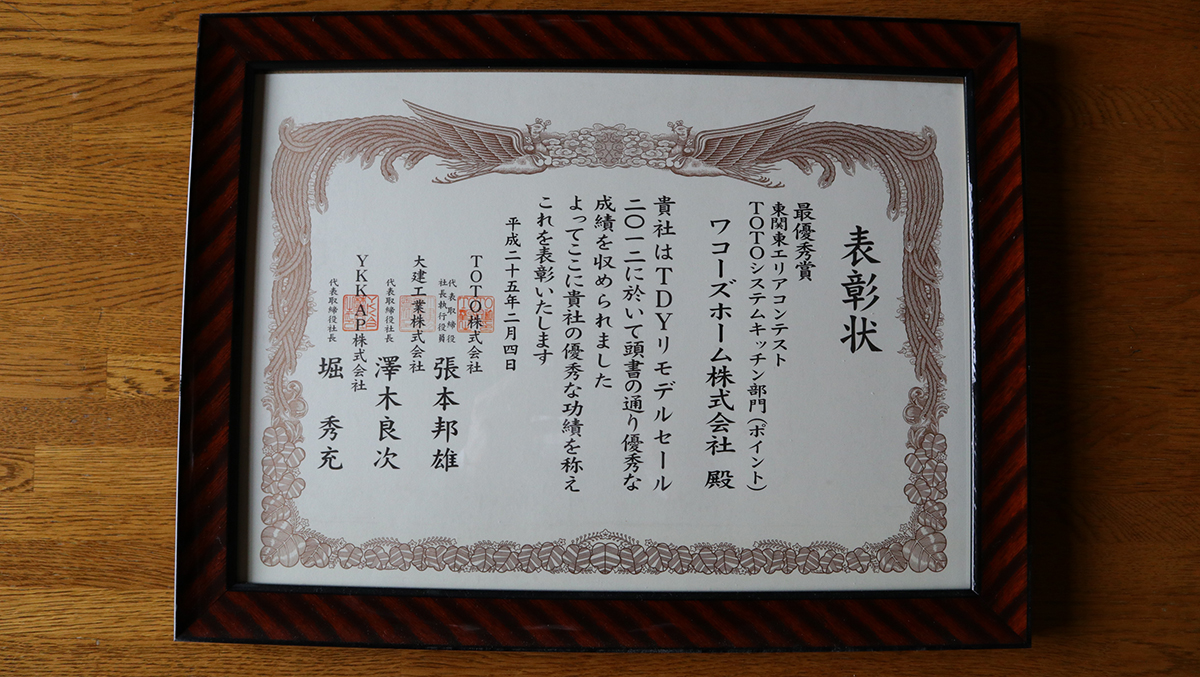 表彰状
最優秀賞
東関東エリアコンテスト
TOTOシステムキッチン部門(ポイント)
ワコーズホーム株式会社 殿
貴社はTDYリモデルセール
二〇一二に於いて頭書の通り優秀な
成績を収められました
よってここに貴社の優秀な功績を称え
これを表彰いたします
平成二十五年二月四日
TOTO株式会社
代表取締役
社長執行役員
張本邦雄
大建工業株式会社
代表取締役社長
澤木良次
YKK AP株式会社
代表取締役社長
堀 秀充